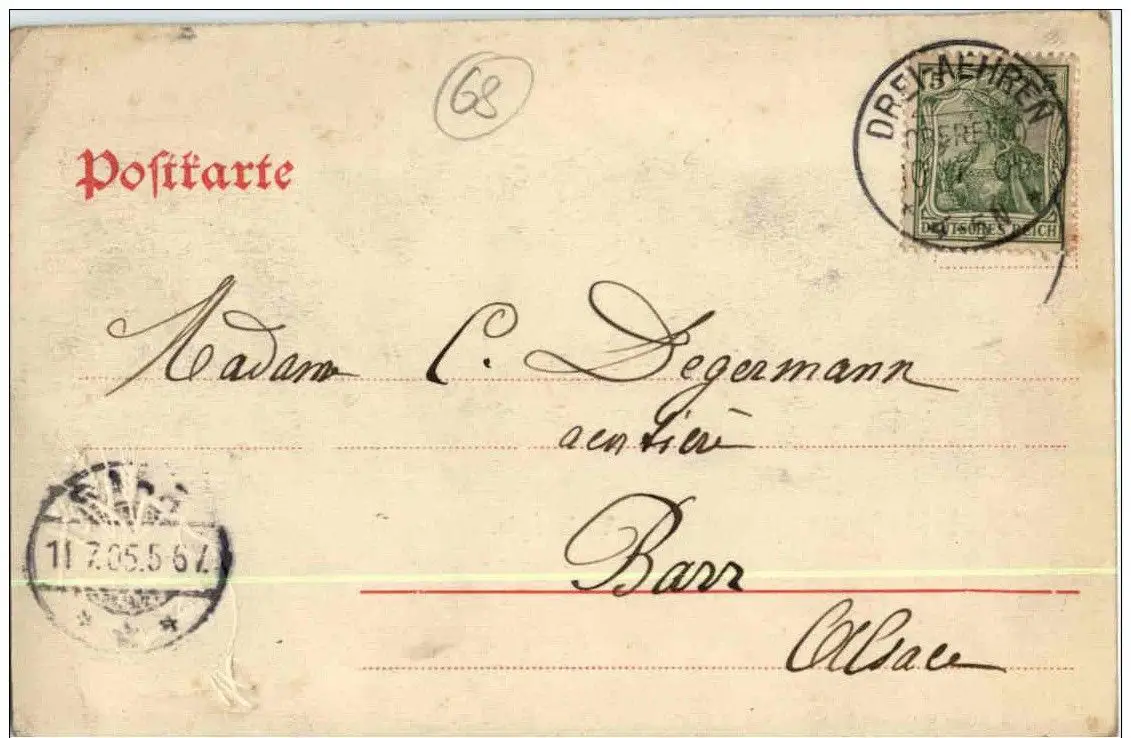 68
DREI-AEHREN
5 5
DEUTSCHES REICH
Postkarte
Madame C. Degermann
Barr
Alsace
11 7.05.5 6 V.